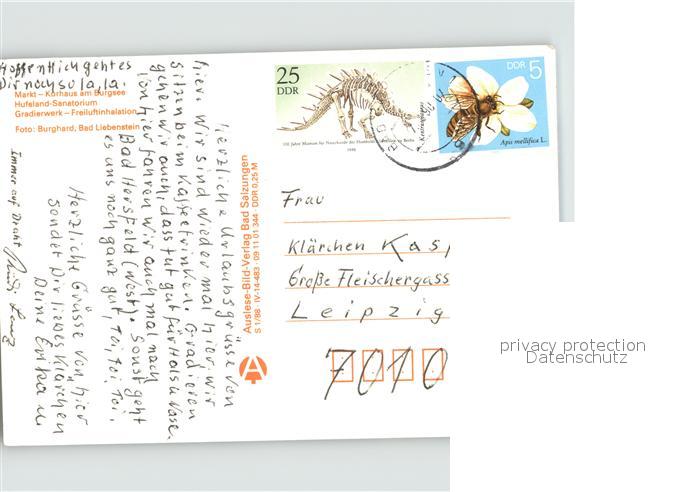 Hoffentlich geht es
Dir noch so la, la.
Markt – Kurhaus am Burgsee
Hufeland-Sanatorium
Gradierwerk – Freiluftinhalation
Foto: Burghard, Bad Liebenstein
Herzliche Urlaubsgrüsse von
hier. Wir sind wieder mal hier, wir
sitzen beim Kaffeetrinken. Gradieren
gehen wir auch, dass tut gut für Hals u. Nase.
Von hier fahren wir auch mal nach
Bad Hersfeld (West). Sonst geht
es uns noch ganz gut, Toi, toi, Toi.
Herzliche Grüsse von hier
sendet Dir liebes Klärchen
Deine Erika u.
Immer auf Draht
Auslese-Bild-Verlag Bad Salzungen
S 1/88 IV-14-483 09 11 01 344 DDR 0,25 M
A
25
DDR
100 Jahre Museum für Naturkunde der Humboldt-Universität zu Berlin
1990
DDR 5
Apis mellifica L.
Frau
Klärchen Kas
Große Fleischergass
Leipzig
7010
privacy protection
Datenschutz